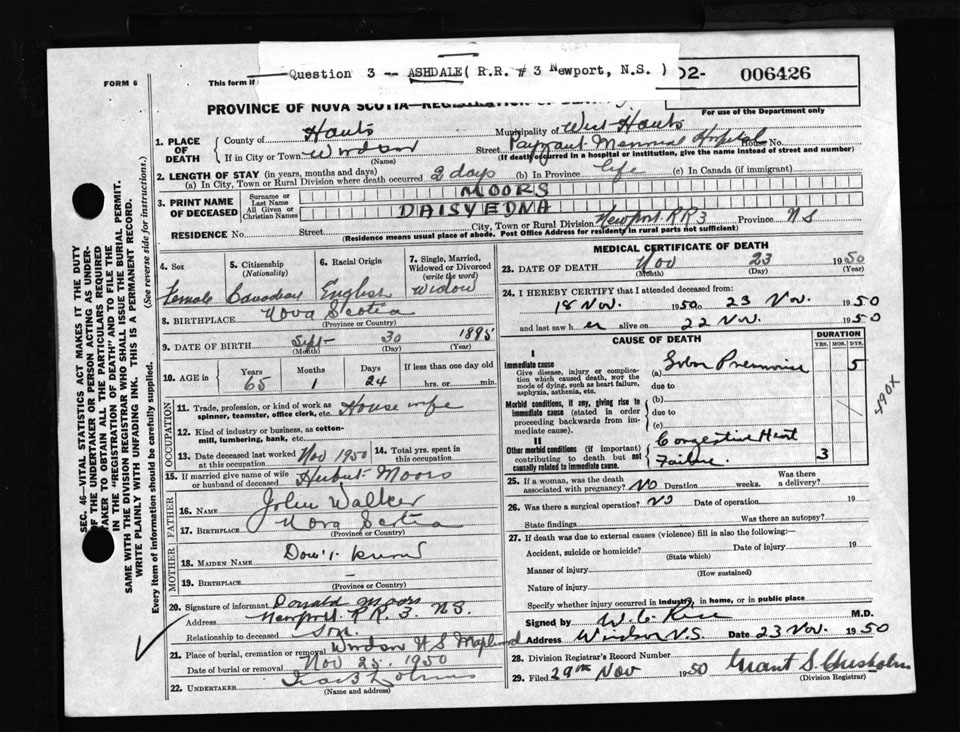 FORM 6
This form if
Question 3 -- ASHDALE( R.R. # 3 Newport, N.S. )
02- 006426
For use of the Department only
PROVINCE OF NOVA SCOTIA—REGISTRATION OF
1. PLACE OF DEATH
County of Hants Municipality of West Hants
If in City or Town Windsor (Name) Street Payzant Memorial Hospital House No.
(If death occurred in a hospital or institution, give the name instead of street and number)
2. LENGTH OF STAY (in years, months and days)
(a) In City, Town or Rural Division where death occurred 2 days (b) In Province life (c) In Canada (if immigrant)
3. PRINT NAME OF DECEASED
Surname or Last Name MOORS
All Given or Christian Names DAISY EDNA
RESIDENCE No. Street City, Town or Rural Division Newport RR3 Province NS
(Residence means usual place of abode. Post Office Address for residents in rural parts not sufficient)
4. Sex Female
5. Citizenship (Nationality) Canadian
6. Racial Origin English
7. Single, Married, Widowed or Divorced (write the word) Widow
8. BIRTHPLACE Nova Scotia
(Province or Country)
9. DATE OF BIRTH Sept 30 1895
(Month) (Day) (Year)
10. AGE in Years 65 Months 1 Days 24 If less than one day old hrs. or min.
OCCUPATION
11. Trade, profession, or kind of work as spinner, teamster, office clerk, etc. House wife
12. Kind of industry or business, as cotton-mill, lumbering, bank, etc.
13. Date deceased last worked at this occupation Nov 1950
14. Total yrs. spent in this occupation
15. If married give name of wife or husband of deceased Herbert Moors
FATHER
16. NAME John Walker
17. BIRTHPLACE Nova Scotia
(Province or Country)
MOTHER
18. MAIDEN NAME Don't know
19. BIRTHPLACE —
(Province or Country)
20. Signature of informant Donald Moors
Address Newport RR 3 N.S.
Relationship to deceased Son
21. Place of burial, cremation or removal Windsor N S
Date of burial or removal Nov 25, 1950
22. UNDERTAKER
(Name and address)
MEDICAL CERTIFICATE OF DEATH
23. DATE OF DEATH Nov 23 1950
(Month) (Day) (Year)
24. I HEREBY CERTIFY that I attended deceased from:
18 Nov. 1950 to 23 Nov. 1950
and last saw h er alive on 22 Nov. 1950
CAUSE OF DEATH
DURATION
YRS. MOS. DYS.
I
Immediate cause
Give disease, injury or complication which caused death, NOT the mode of dying, such as heart failure, asphyxia, asthenia, etc.
(a) Lobar Pneumonia 5
due to
Morbid conditions, if any, giving rise to immediate cause (stated in order proceeding backwards from immediate cause).
(b)
due to
(c)
II
Other morbid conditions (if important) contributing to death but not causally related to immediate cause.
Congestive Heart
Failure. 3
490X
25. If a woman, was the death associated with pregnancy? NO Duration weeks. Was there a delivery?
26. Was there a surgical operation? NO Date of operation 19
State findings Was there an autopsy?
27. If death was due to external causes (violence) fill in also the following:—
Accident, suicide or homicide? Date of injury 19
(State which)
Manner of injury
(How sustained)
Nature of injury
Specify whether injury occurred in industry, in home, or in public place
Signed by M.D.
Address Windsor N.S. Date 23 Nov. 1950
28. Division Registrar's Record Number
29. Filed 29th Nov 1950 Grant S. Chisholm
(Division Registrar)
SEC. 46—VITAL STATISTICS ACT MAKES IT THE DUTY
OF THE UNDERTAKER OR PERSON ACTING AS UNDER-
TAKER TO OBTAIN ALL THE PARTICULARS REQUIRED
IN THE "REGISTRATION OF DEATH" AND TO FILE THE
SAME WITH THE DIVISION REGISTRAR WHO SHALL ISSUE THE BURIAL PERMIT.
WRITE PLAINLY WITH UNFADING INK. THIS IS A PERMANENT RECORD.
Every item of information should be carefully supplied. (See reverse side for instructions.)